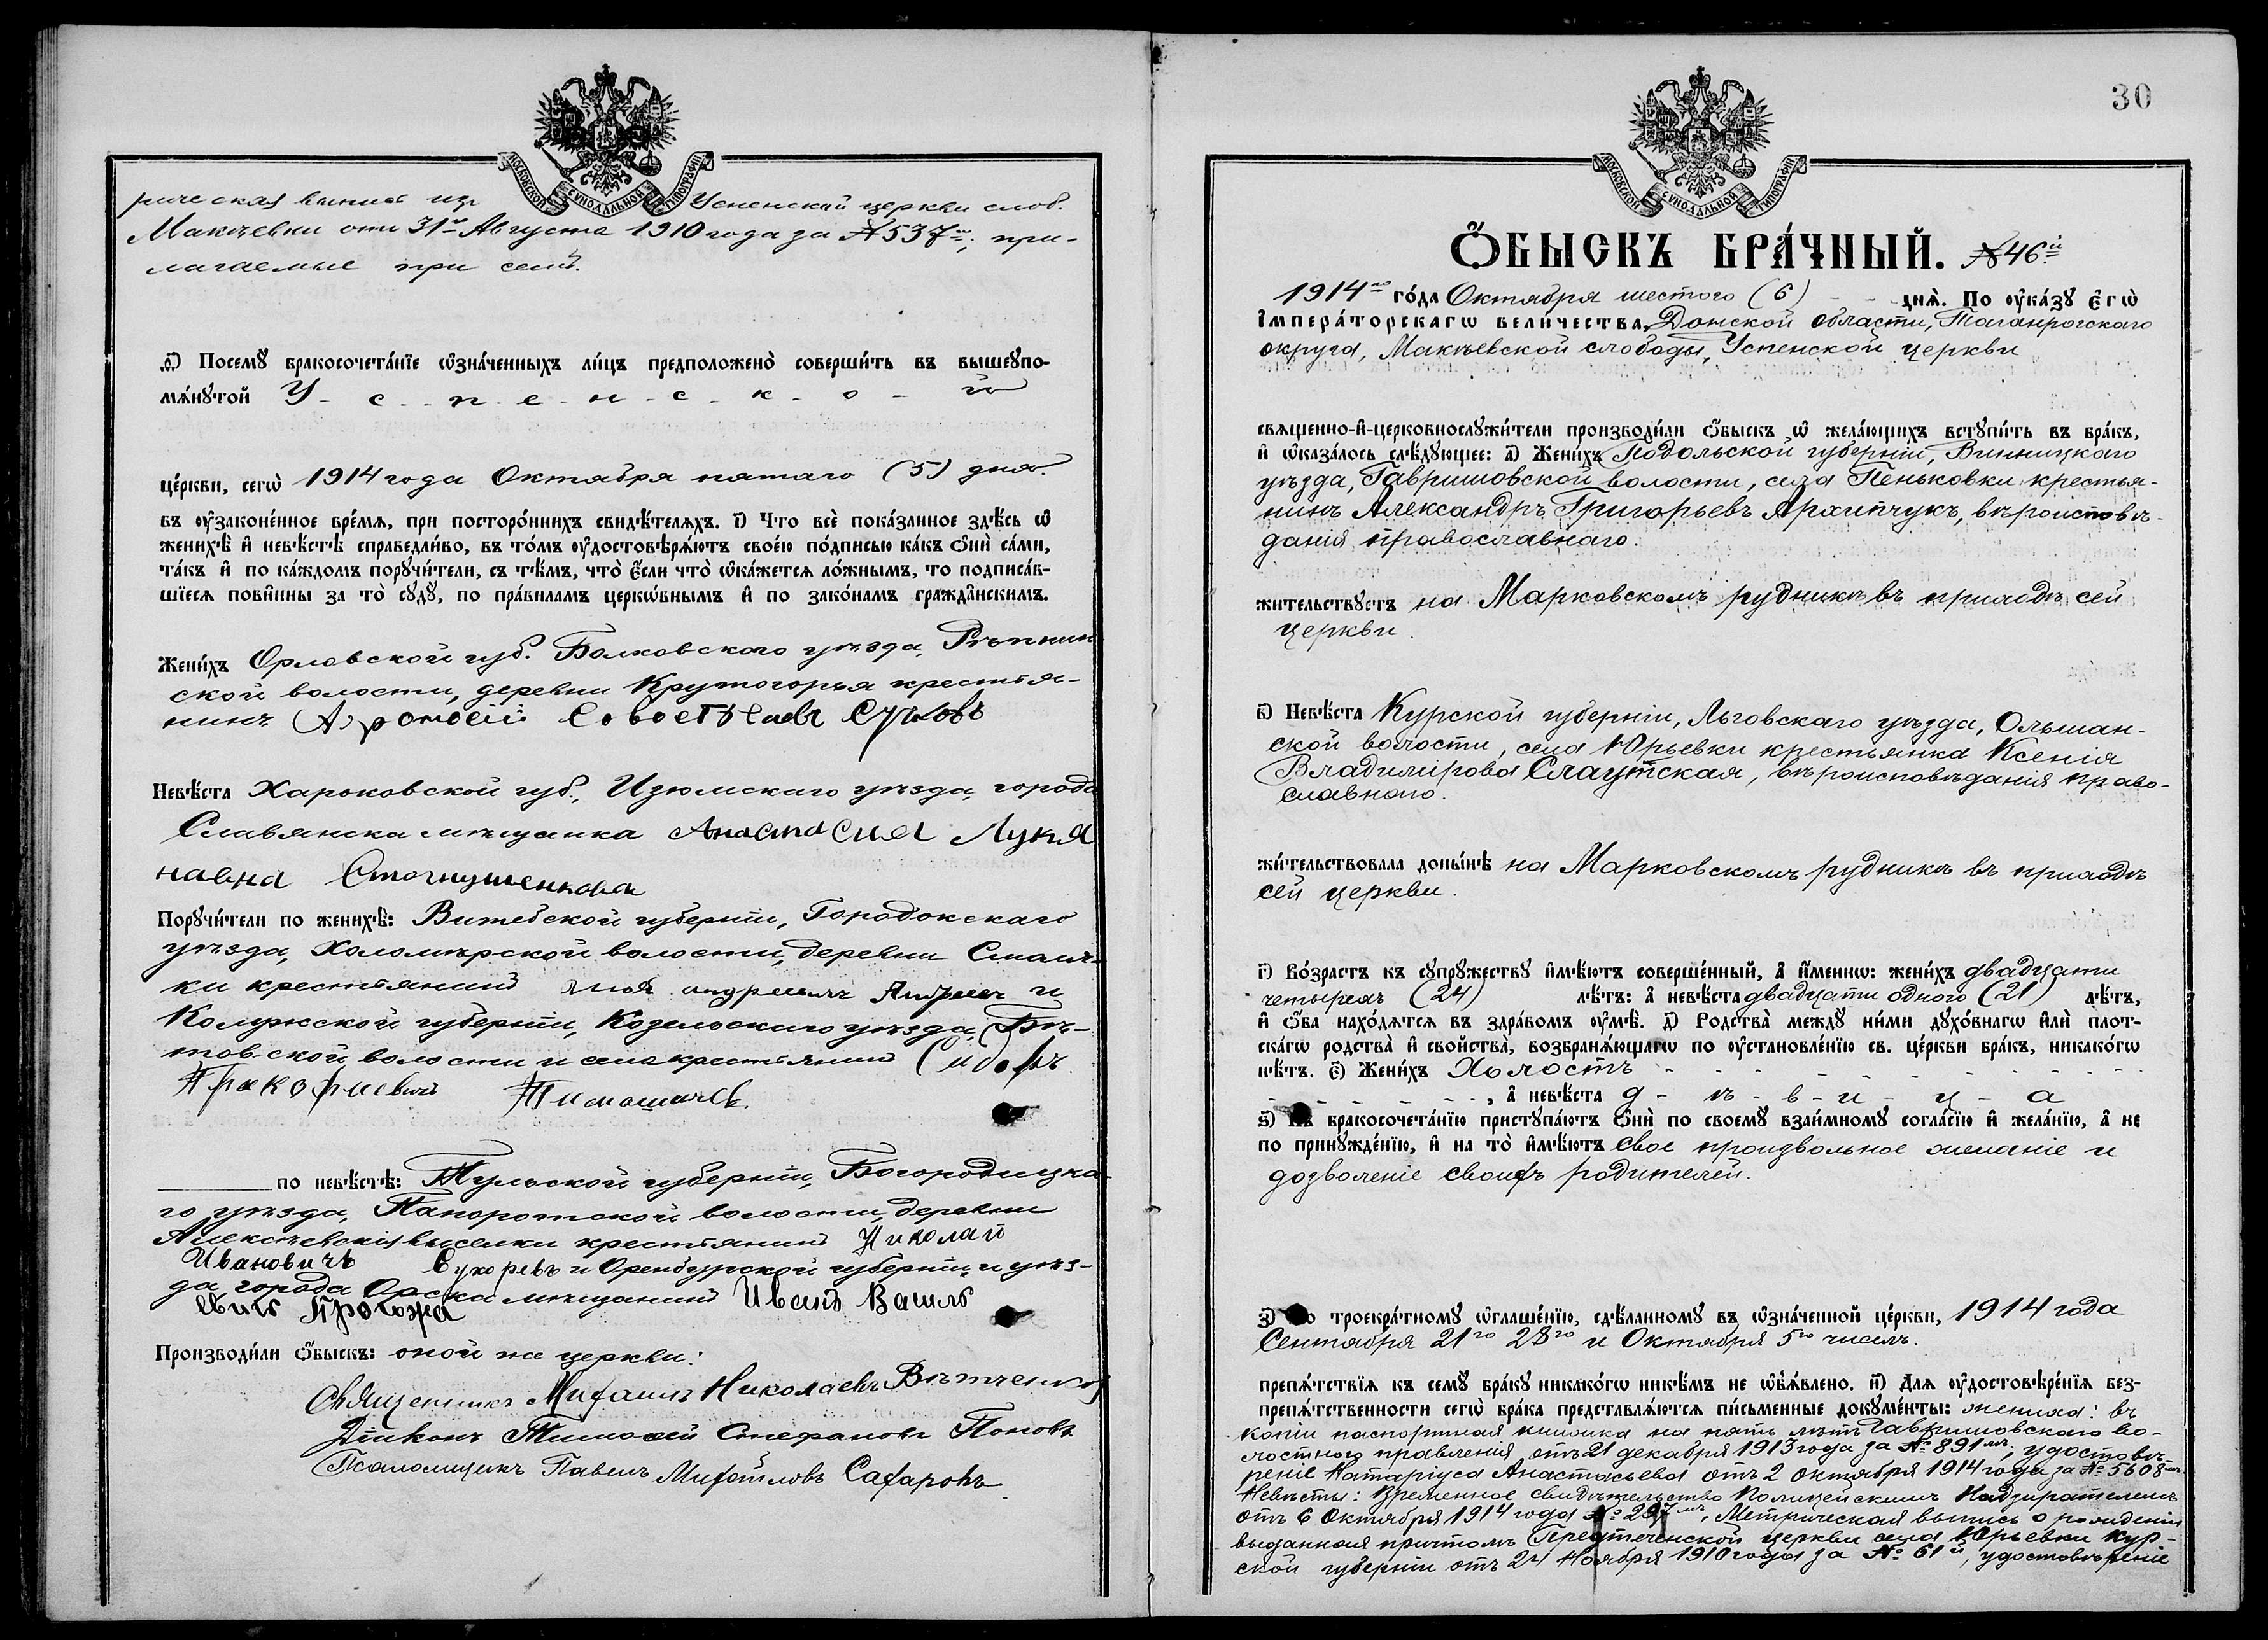 МОСКОВСКОЙ СѴНОДАЛЬНОЙ ТИПОГРАФІИ
рическая выпись изъ Успенской церкви слоб.
Макѣевки отъ 31го Августа 1910 года за № 537мъ, при-
лагаемые при семъ.
ѳ҃) Посемꙋ бракосочета́нїе ѡ҆зна́ченныхъ ли́цъ предположено̀ соверши́ть въ вышеꙋпо-
мѧ́нꙋтой У - с - п - е - н - с - к - о - й
це́ркви, сегѡ̀ 1914 года Октября пятаго (5) дня
въ ѹ҆законе́нное вре́мѧ, при посторо́ннихъ свидѣ́телѧхъ. і҃) Что̀ всѐ пока́занное здѣ́сь ѡ҆
женихѣ̀ и҆ невѣ́стѣ справедли́во, въ то́мъ ѹ҆достовѣрѧ́ютъ свое́ю по́дписью ка́къ ѻ҆нѝ са́ми,
та́къ и҆ по ка́ждомъ порꙋчи́тели, съ тѣ́мъ, что̀ є҆́сли что̀ ѡ҆ка́жетсѧ ло́жнымъ, то подписа́в-
шїесѧ пови́нны за то̀ сꙋдꙋ̀, по пра́виламъ церкѡ́внымъ и҆ по зако́намъ гражда̂нскимъ.
Жени́хъ Орловской губ. Болховского уѣзда, Рѣпнин
ской волости, деревни Крутогорья крестья-
нинъ
Невѣ́ста Харьковской губ., Изюмскаго уѣзда, города
Славянска мѣщанка Анастасия Лукья
навна
Порꙋчи́тели по женихѣ̀: Витебской губерніи, Городокскаго
уѣзда, Холомѣрской волости, деревни
ки крестьянинъ и
Колужской губерніи, Козельскаго уѣзда,
товской волости и села крестьянинъ Сидоръ
Пракофиевичъ
по невѣ́стѣ: Тульской губерніи, Богородицка-
го уѣзда, Папоротской волости, деревни
Алексѣевскія выселки крестьянинъ Николай
Ивановичъ Сухоревъ и Оренбургской губерніи и уѣз-
да города Орска мѣщанинъ Иванъ Василь
евичъ
Производи́ли ѻ҆́быскъ: оной же церкви:
Священникъ Михаилъ Николаевъ
Діаконъ Тимоѳей Стефановъ Поповъ
Псаломщикъ Павелъ Михайловъ Сафаровъ
30
МОСКОВСКОЙ СѴНОДАЛЬНОЙ ТИПОГРАФІИ
Ѻ҆́БЫСКЪ БРА́ЧНЫЙ. № 46й
1914го го́да Октября шестого (6) - - днѧ̀. По ѹ҆ка́зꙋ є҆гѡ̀
і҆мпера́торскагѡ вели́чества, Донской области, Таганрогскаго
округа, Макѣевской слободы, Успенской церкви
свѧщенно-и҆-церковнослꙋжи́тели производи́ли ѻ҆́быскъ ѡ҆ жела́ющихъ встꙋпи́ть въ бра́къ,
и҆ ѡ҆каза́лось слѣ́дꙋющее: а҃) Жени́хъ Подольской губерніи, Винницкаго
уѣзда, Гавришовской волости, села Пеньковки крестья-
нинъ Александръ Григорьевъ Архипчукъ, вѣроисповѣ-
данія православнаго.
жительствꙋетъ на Марковскомъ рудникѣ въ приходѣ сей
церкви.
в҃) Невѣ́ста Курской губерніи, Льговскаго уѣзда, Ольшан-
ской волости, села Юрьевки крестьянка Ксенія
Владимірова Слаутская, вѣроисповѣданія право-
славного.
жи́тельствовала доны́нѣ на Марковскомъ рудникѣ въ приходѣ
сей церкви.
г҃) Во́зрастъ къ сꙋпрꙋ́жествꙋ и҆мѣ́ютъ соверше́нный, а҆ и҆́меннѡ: жени́хъ двадцати
четырехъ (24) лѣ́тъ: а҆ невѣ́ста двадцати одного (21) лѣ́тъ,
и҆ ѻ҆́ба нахо́дѧтсѧ въ здра́вомъ ѹ҆мѣ̀. д҃) Родства̀ междꙋ ни́ми дꙋхо́внагѡ и҆лѝ плот-
ска́гѡ родства̀ и҆ свойства̀, возбранѧ́ющагѡ по ѹ҆становле́нїю св. це́ркви бра́къ, никако́гѡ
нѣ́тъ. є҃) Жени́хъ Холостъ - - - - - - - -
- - - - - - , а҆ невѣ́ста д - ѣ - в - и - ц - а
ѕ҃) Къ бракосочета́нїю пристꙋпа́ютъ ѻ҆нѝ по своемꙋ̀ взаи́мномꙋ согла́сїю и҆ жела́нїю, а҆ не
по принꙋжде́нїю, и҆ на то̀ и҆мѣ́ютъ свое произвольное желаніе и
дозволеніе своихъ родителей.
з҃) По троекра́тномꙋ ѡ҆глаше́нїю, сдѣ́ланномꙋ въ ѡ҆зна́ченной це́ркви, 1914 года
Сентября 21го 28го и Октября 5го числъ.
препѧ́тствїѧ къ семꙋ̀ бра́кꙋ никако́гѡ никѣ́мъ не ѡ҆б̾ѧ́влено. и҃) Длѧ ѹ҆достовѣре́нїѧ без-
препѧ́тственности сегѡ̀ бра́ка представлѧ́ютсѧ пи́сьменные докꙋме́нты: жениха: въ
копіи паспортная книжка на пять лѣтъ Гавришовскаго во-
лостного правленія отъ 21 декабря 1913 года за № 891мъ, удостовѣ-
реніе Натаріуса Анастасьева отъ 2 октября 1914 года за № 5608мъ
Невѣсты: Временное свидѣтельство Полицейскимъ Надзирателемъ
отъ 6 Октября 1914 года № 297мъ, Метрическая выпись о рожденіи
выданная причтомъ Предтеченской церкви села Юрьевки Кур-
ской губерніи отъ 24 Ноября 1910 года за № 61й, удостовѣреніе